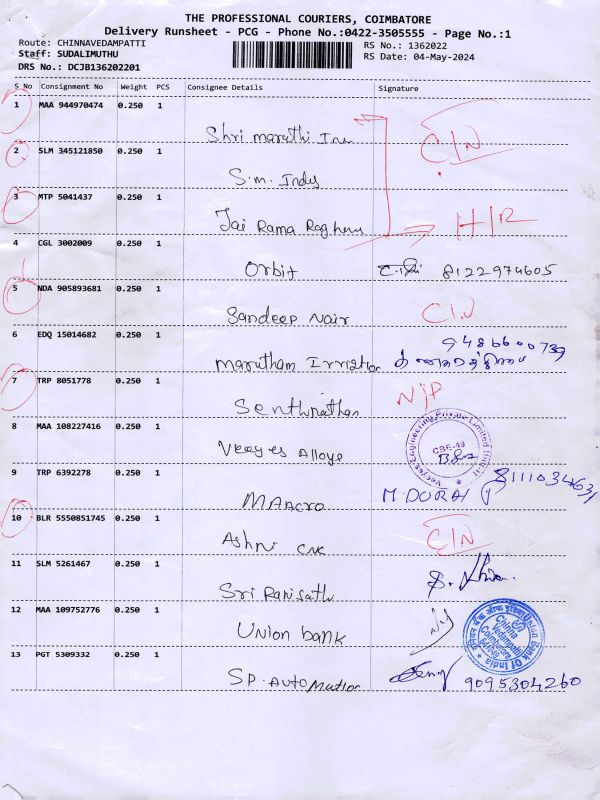 THE PROFESSIONAL COURIERS, COIMBATORE
Delivery Runsheet - PCG - Phone No.:0422-3505555 - Page No.:1
Route: CHINNAVEDAMPATTI
RS No.: 1362022
Staff: SUDALIMUTHU
RS Date: 04-May-2024
DRS No.: DCJB136202201
S No Consignment No Weight PCS Consignee Details Signature
1 MAA 944970474 0.250 1
Shri maruthi Ine C/N
2 SLM 345121850 0.250 1
S.m. Indy
3 MTP 5041437 0.250 1
Jai Rama Raghavu H/R
4 CGL 3002009 0.250 1
Orbit 8122974605
5 NDA 905893681 0.250 1
Sandeep Nair C/N
6 EDQ 15014682 0.250 1
9486600739
marutham Irrigation
7 TRP 8051778 0.250 1
Senthinathan NJP
8 MAA 108227416 0.250 1
Veeyes Alloys
Veeyes Engineering Private Limited Unit-II
CBE-49
9 TRP 6392278 0.250 1
MAACRO M.DORAI 8111034631
10 BLR 5550851745 0.250 1
Ashni CNC C/N
11 SLM 5261467 0.250 1
Sri Ranisath
12 MAA 109752776 0.250 1
Union bank
यूनियन बैंक ऑफ इंडिया Union Bank Of India
Chinna
Vedampatti
Coimbatore
641049
13 PGT 5309332 0.250 1
SP. AUTOMation 9095304260